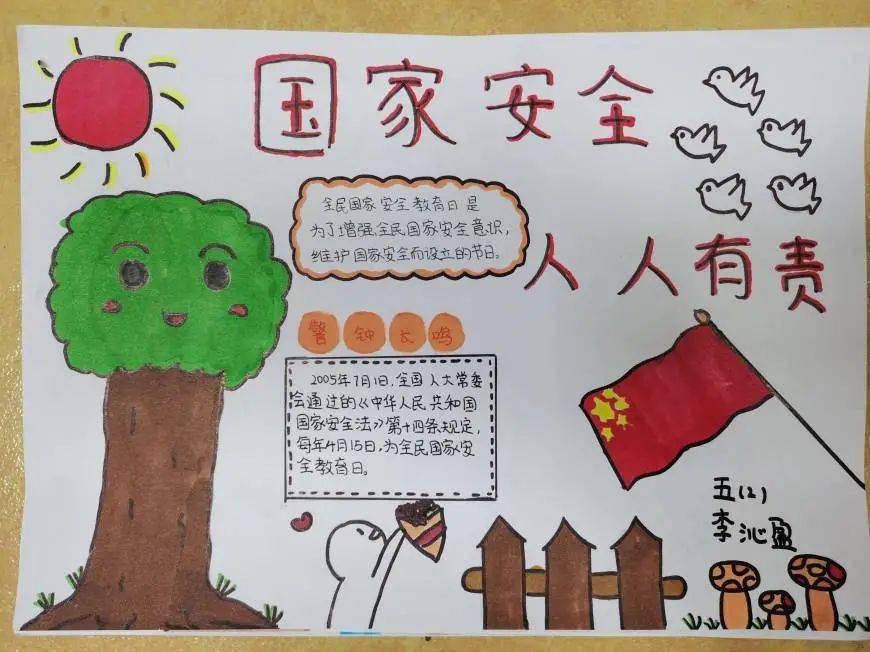 国家安全
人人有责
全民国家安全教育日是
为了增强全民国家安全意识,
维护国家安全而设立的节日。
警钟长鸣
2005年7月1日,全国人大常委
会通过的《中华人民共和国
国家安全法》第十四条规定,
每年4月15日,为全民国家安
全教育日。
五(2)
李沁盈